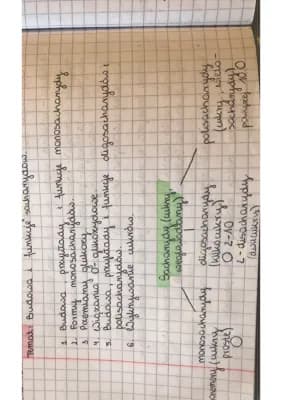 Temat: Budowa i funkcje sacharydów.
1. Budowa, przykłady i funkcje monosacharydów
2. Formy monosacharydów.
3. Przemiany glukozy.
4. Wiązania O-glikozydowe
5. Budowa, przykłady i funkcje oligosacharydów i
polisacharydów.
6. Wykrywanie cukrów.
Sacharydy (cukry,
węglowodany)
monosacharydy
(cukry
proste)
oligosacharydy
(kilkocukry)
2-10
2- disacharydy
(dwucukry)
polisacharydy
(cukry, wielo-
sacharydy)
powyżej 10